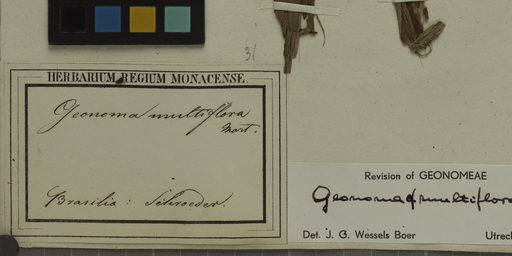 31
HERBARIUM REGIUM MONACENSE.
Geonoma multiflora
Mart.
Brasilia: Schroeder.
Revision of GEONOMEAE
Geonoma multiflora
Det. J. G. Wessels Boer Utrec